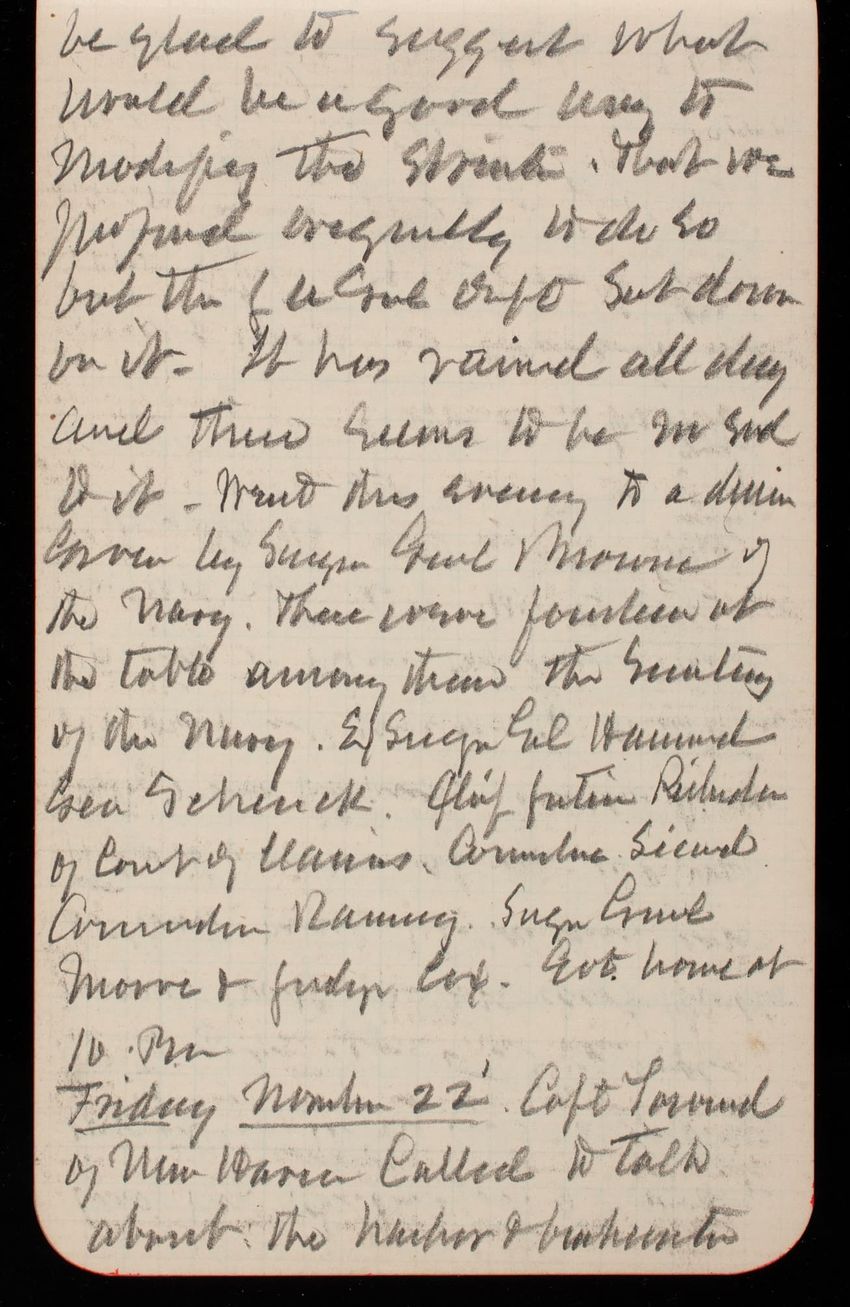 be glad to suggest what
would be a good way to
modify the . That we
proposed originally to do so
but the Govt Dept Sat down
on it - It has rained all day
and there seems to be no end
to it - Went this evening to a dinner
Given by Surgn Genl Browne of
the Navy. There were fourteen at
the table among them the Secretary
of the Navy. Ex Surgn Gel Hammond
Gen Schenck. Chief Justice Richardson
of Court of Claims. Commdre Sicard
Commodore Ramsey. Surgn Genl
Moore & Judge Cox. Got home at
10 Pm
Friday November 22' Capt Townsend
of New Haven Called to talk
about the harbor & breakwater